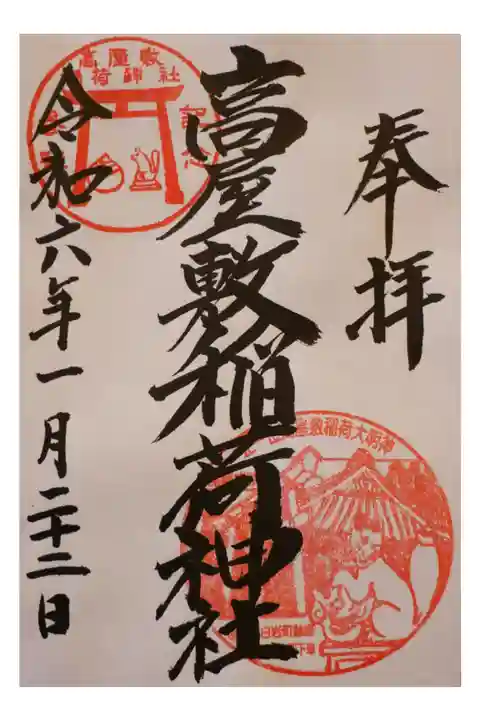 奉拝
高屋敷稲荷神社
令和六年一月二十二日
高屋敷
稲荷神社
屋敷稲荷大明神